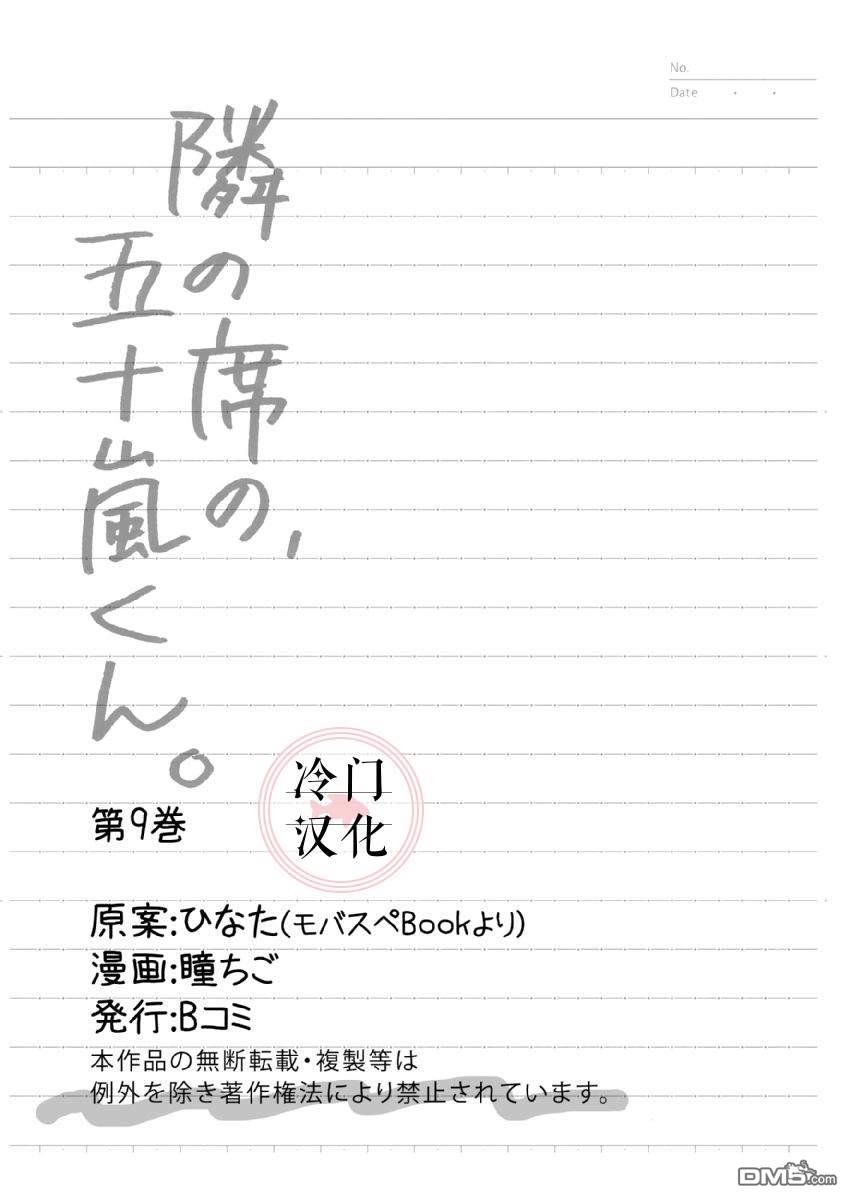 No.
Date
隣の席の、
五十嵐くん。
第9巻
冷门
汉化
原案:ひなた(モバスペBookより)
漫画:瞳ちご
発行:Bコミ
本作品の無断転載・複製等は
例外を除き著作権法により禁止されています。
DM5.com